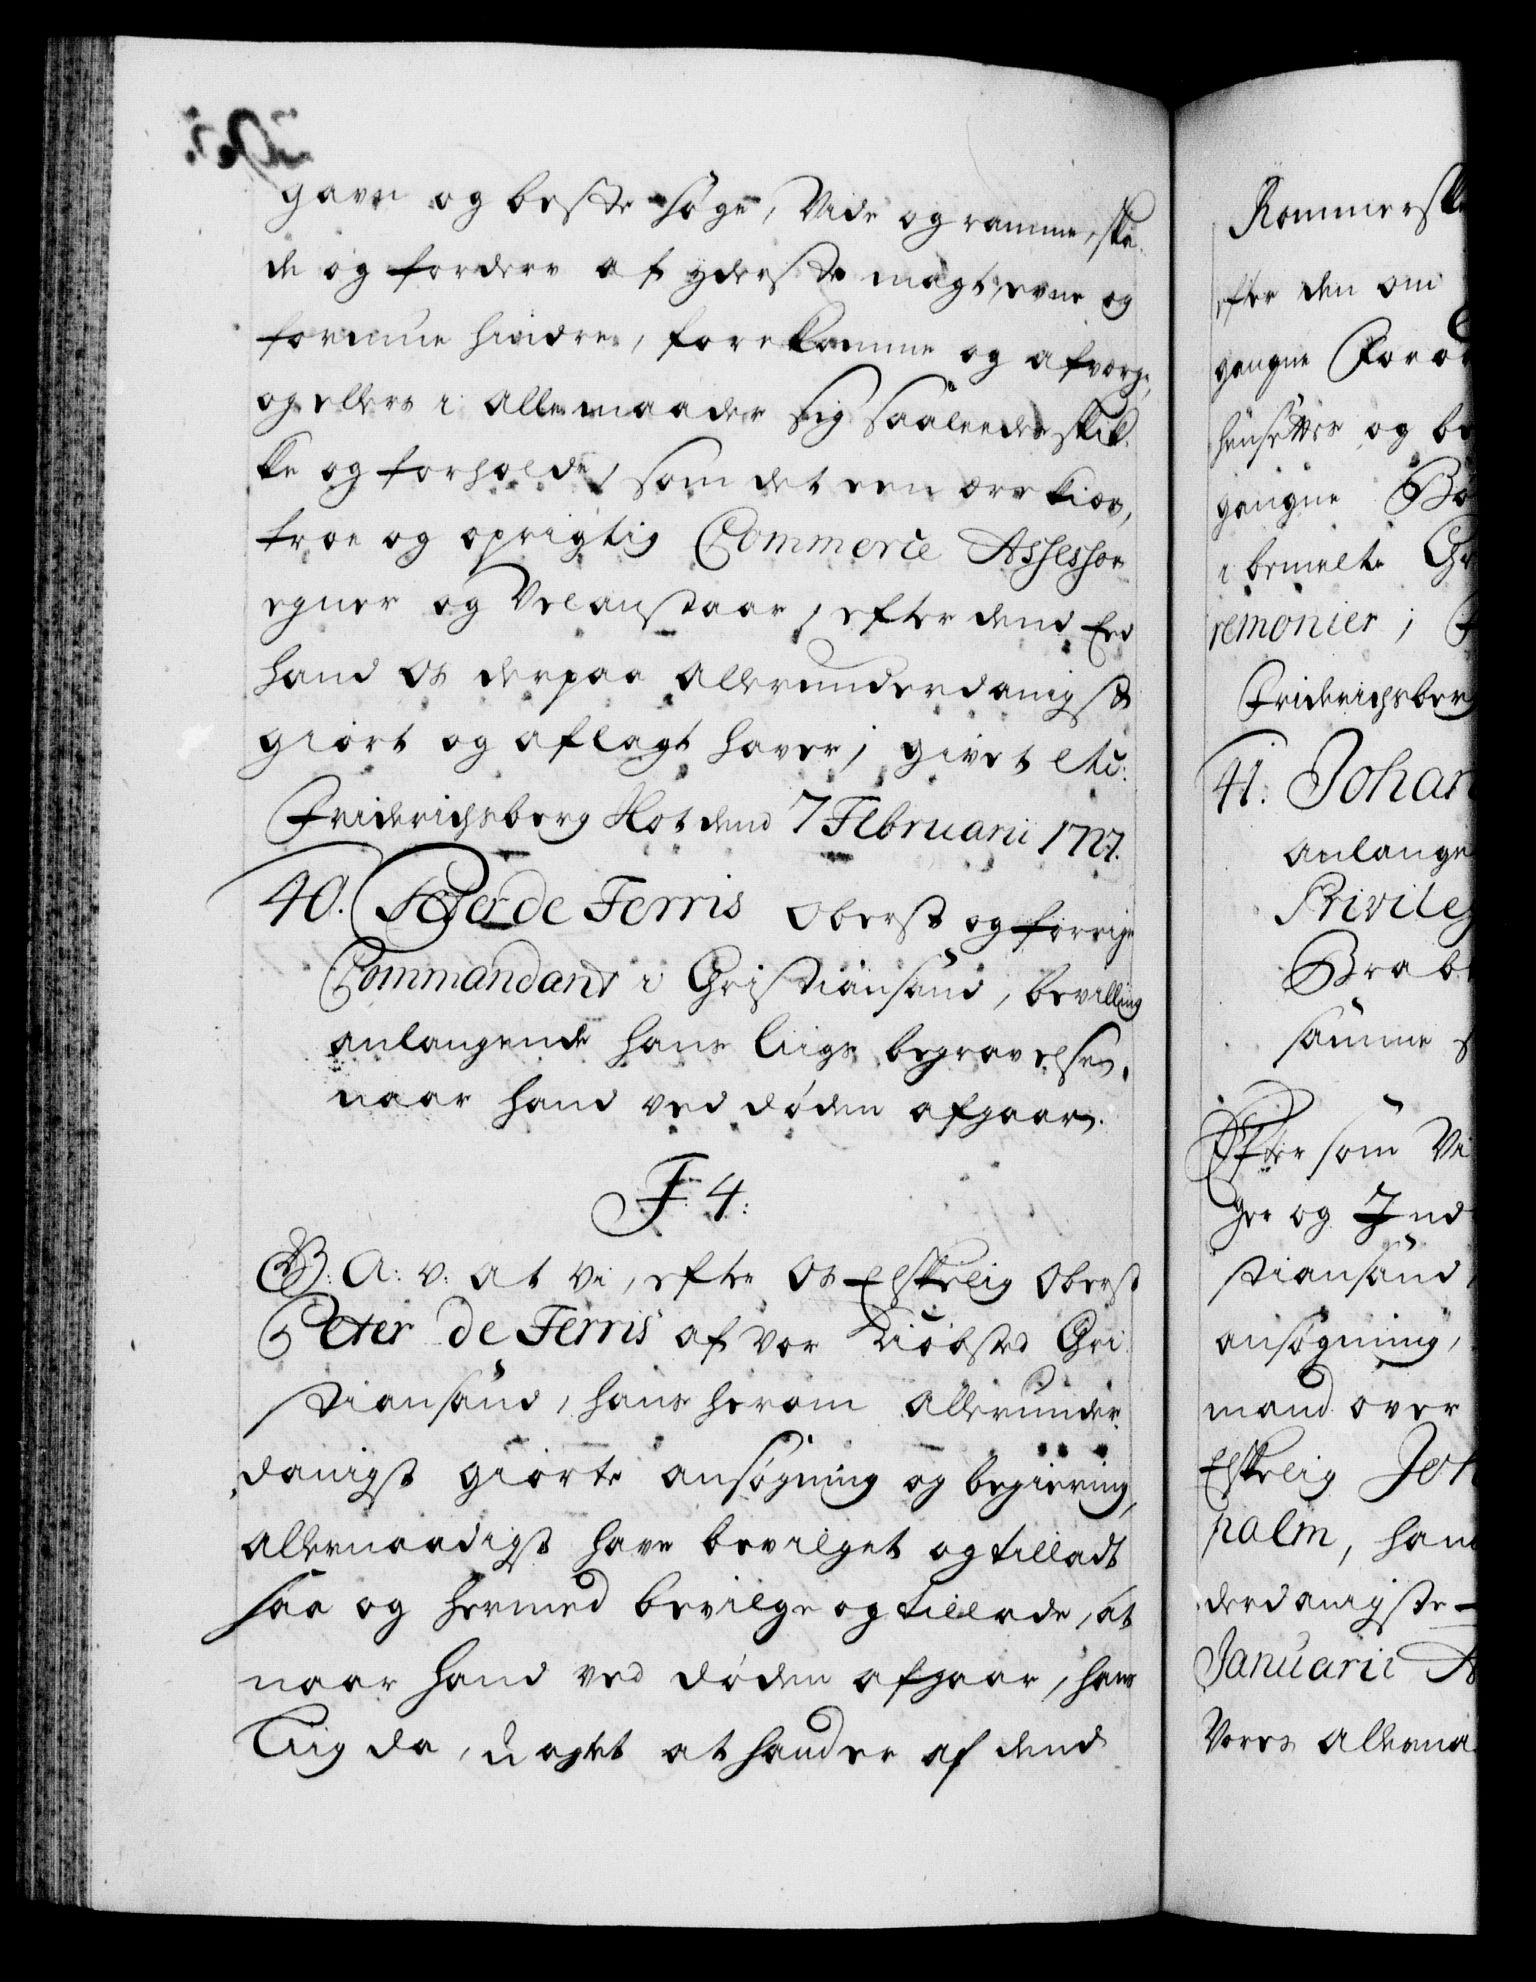 gavn og beste søge, Vide og ramme, ska-
de og forderv af yderste magt, evne og
formue hindre, forekomme og afverge,
og ellers i alle maader sig saaleedes skik-
ke og forholde, som det een ære kiær,
troe og oprigtig Commerce Assessor
egner og Vel anstaar, efter dend Eed
hand os derpaa allerunderdanigst
giort og aflagt haver; givet etc:
Friderichsberg Slot dend 7 Februarii 1727.
40. Peter de Ferris Oberst og forrige
Commandant i Christiansand, bevilling
anlangende hans Liigs begravelse,
naar hand ved døden afgaar.
F: 4:
G: A: V: at Vi, efter Os Elskelig Oberst
Peter de Ferris af Vor Kiøbsted Chri-
stiansand, hans herom allerunder-
danigst giorte ansøgning og begiering,
allernaadigst have bevilget og tilladt
saa og hermed bevilge og tillade, at
naar hand ved døden afgaar, hans
Liig da, uagtet at hand er af dend
Kommerske
efter den om
gangne Foror
hensettes og be
gangne
i bemelte
remonier;
Friderichsberg
41: Johan
anlange
Privileg
Brab
samme
Eftersom Vi
ger og Ind
stiansand
ansøgning,
mand over
Elskelig Joh
palm, hans
derdanigste
Januarii A
Vores allerna